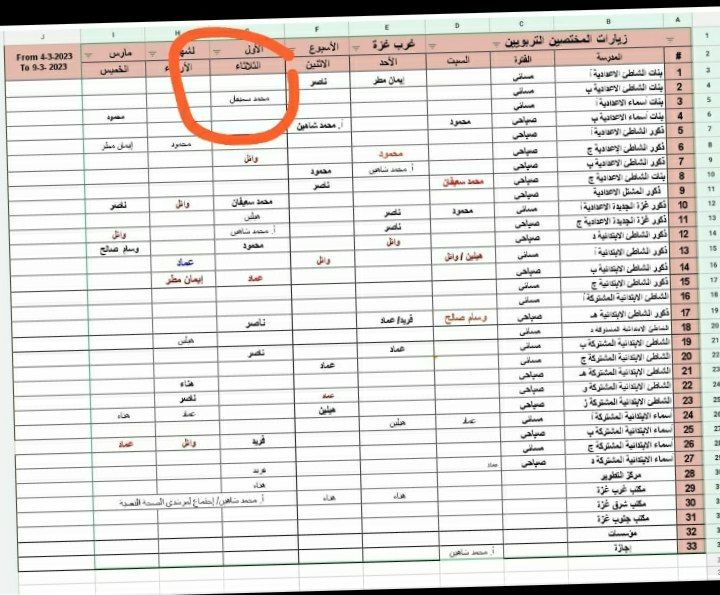 J I H F E D C B A
زيارات المختصين التربويين غرب غزة الأسبوع الأول لشهر مارس From 4-3-2023
To 9-3- 2023
# المدرسة الفترة السبت الأحد الاثنين الثلاثاء الأربعاء الخميس
1 بنات الشاطئ الاعدادية أ مسائي إيمان مطر ناصر
2 بنات الشاطئ الاعدادية ب صباحي محمد سعيفان
3 بنات أسماء الاعدادية أ مسائي محمود
4 بنات أسماء الاعدادية ب صباحي محمود أ. محمد شاهين
5 ذكور الشاطئ الاعدادية أ صباحي محمود إيمان مطر
6 ذكور الشاطئ الاعدادية ج صباحي محمود وائل
7 ذكور الشاطئ الاعدادية ب صباحي أ. محمد شاهين محمود
8 بنات الشاطئ الاعدادية ج صباحي محمد سعيفان ناصر
9 ذكور المشتل الاعدادية صباحي محمد سعيفان وائل ناصر
10 ذكور غزة الجديدة الاعدادية أ مسائي محمود ناصر هيلين
11 ذكور غزة الجديدة الاعدادية ج صباحي ناصر أ. محمد شاهين وائل
12 ذكور الشاطئ الابتدائية د صباحي وائل محمود وسام صالح
13 ذكور الشاطئ الابتدائية أ مسائي هيلين / وائل وائل عماد
14 ذكور الشاطئ الابتدائية ب صباحي عماد إيمان مطر
15 ذكور الشاطئ الابتدائية ج مسائي
16 الشاطئ الابتدائية المشتركة أ مسائي
17 ذكور الشاطئ الابتدائية هـ صباحي وسام صالح فريد/ عماد ناصر
18 الشاطئ الابتدائية المشتركة د مسائي هيلين
19 الشاطئ الابتدائية المشتركة ب مسائي عماد ناصر
20 الشاطئ الابتدائية المشتركة ج مسائي عماد
21 الشاطئ الابتدائية المشتركة هـ صباحي هناء
22 الشاطئ الابتدائية المشتركة و صباحي عماد ناصر
23 الشاطئ الابتدائية المشتركة ز صباحي هيلين عماد هناء
24 أسماء الابتدائية المشتركة أ مسائي عماد هيلين
25 أسماء الابتدائية المشتركة ب صباحي فريد وائل عماد
26 أسماء الابتدائية المشتركة ج مسائي
27 أسماء الابتدائية المشتركة د صباحي عماد فريد
28 مركز التطوير هناء
29 مكتب غرب غزة هناء هناء أ. محمد شاهين/ إجتماع لمرشدي الصحة النفسية
30 مكتب شرق غزة
31 مكتب جنوب غزة
32 مؤسسات
33 إجازة أ. محمد شاهين